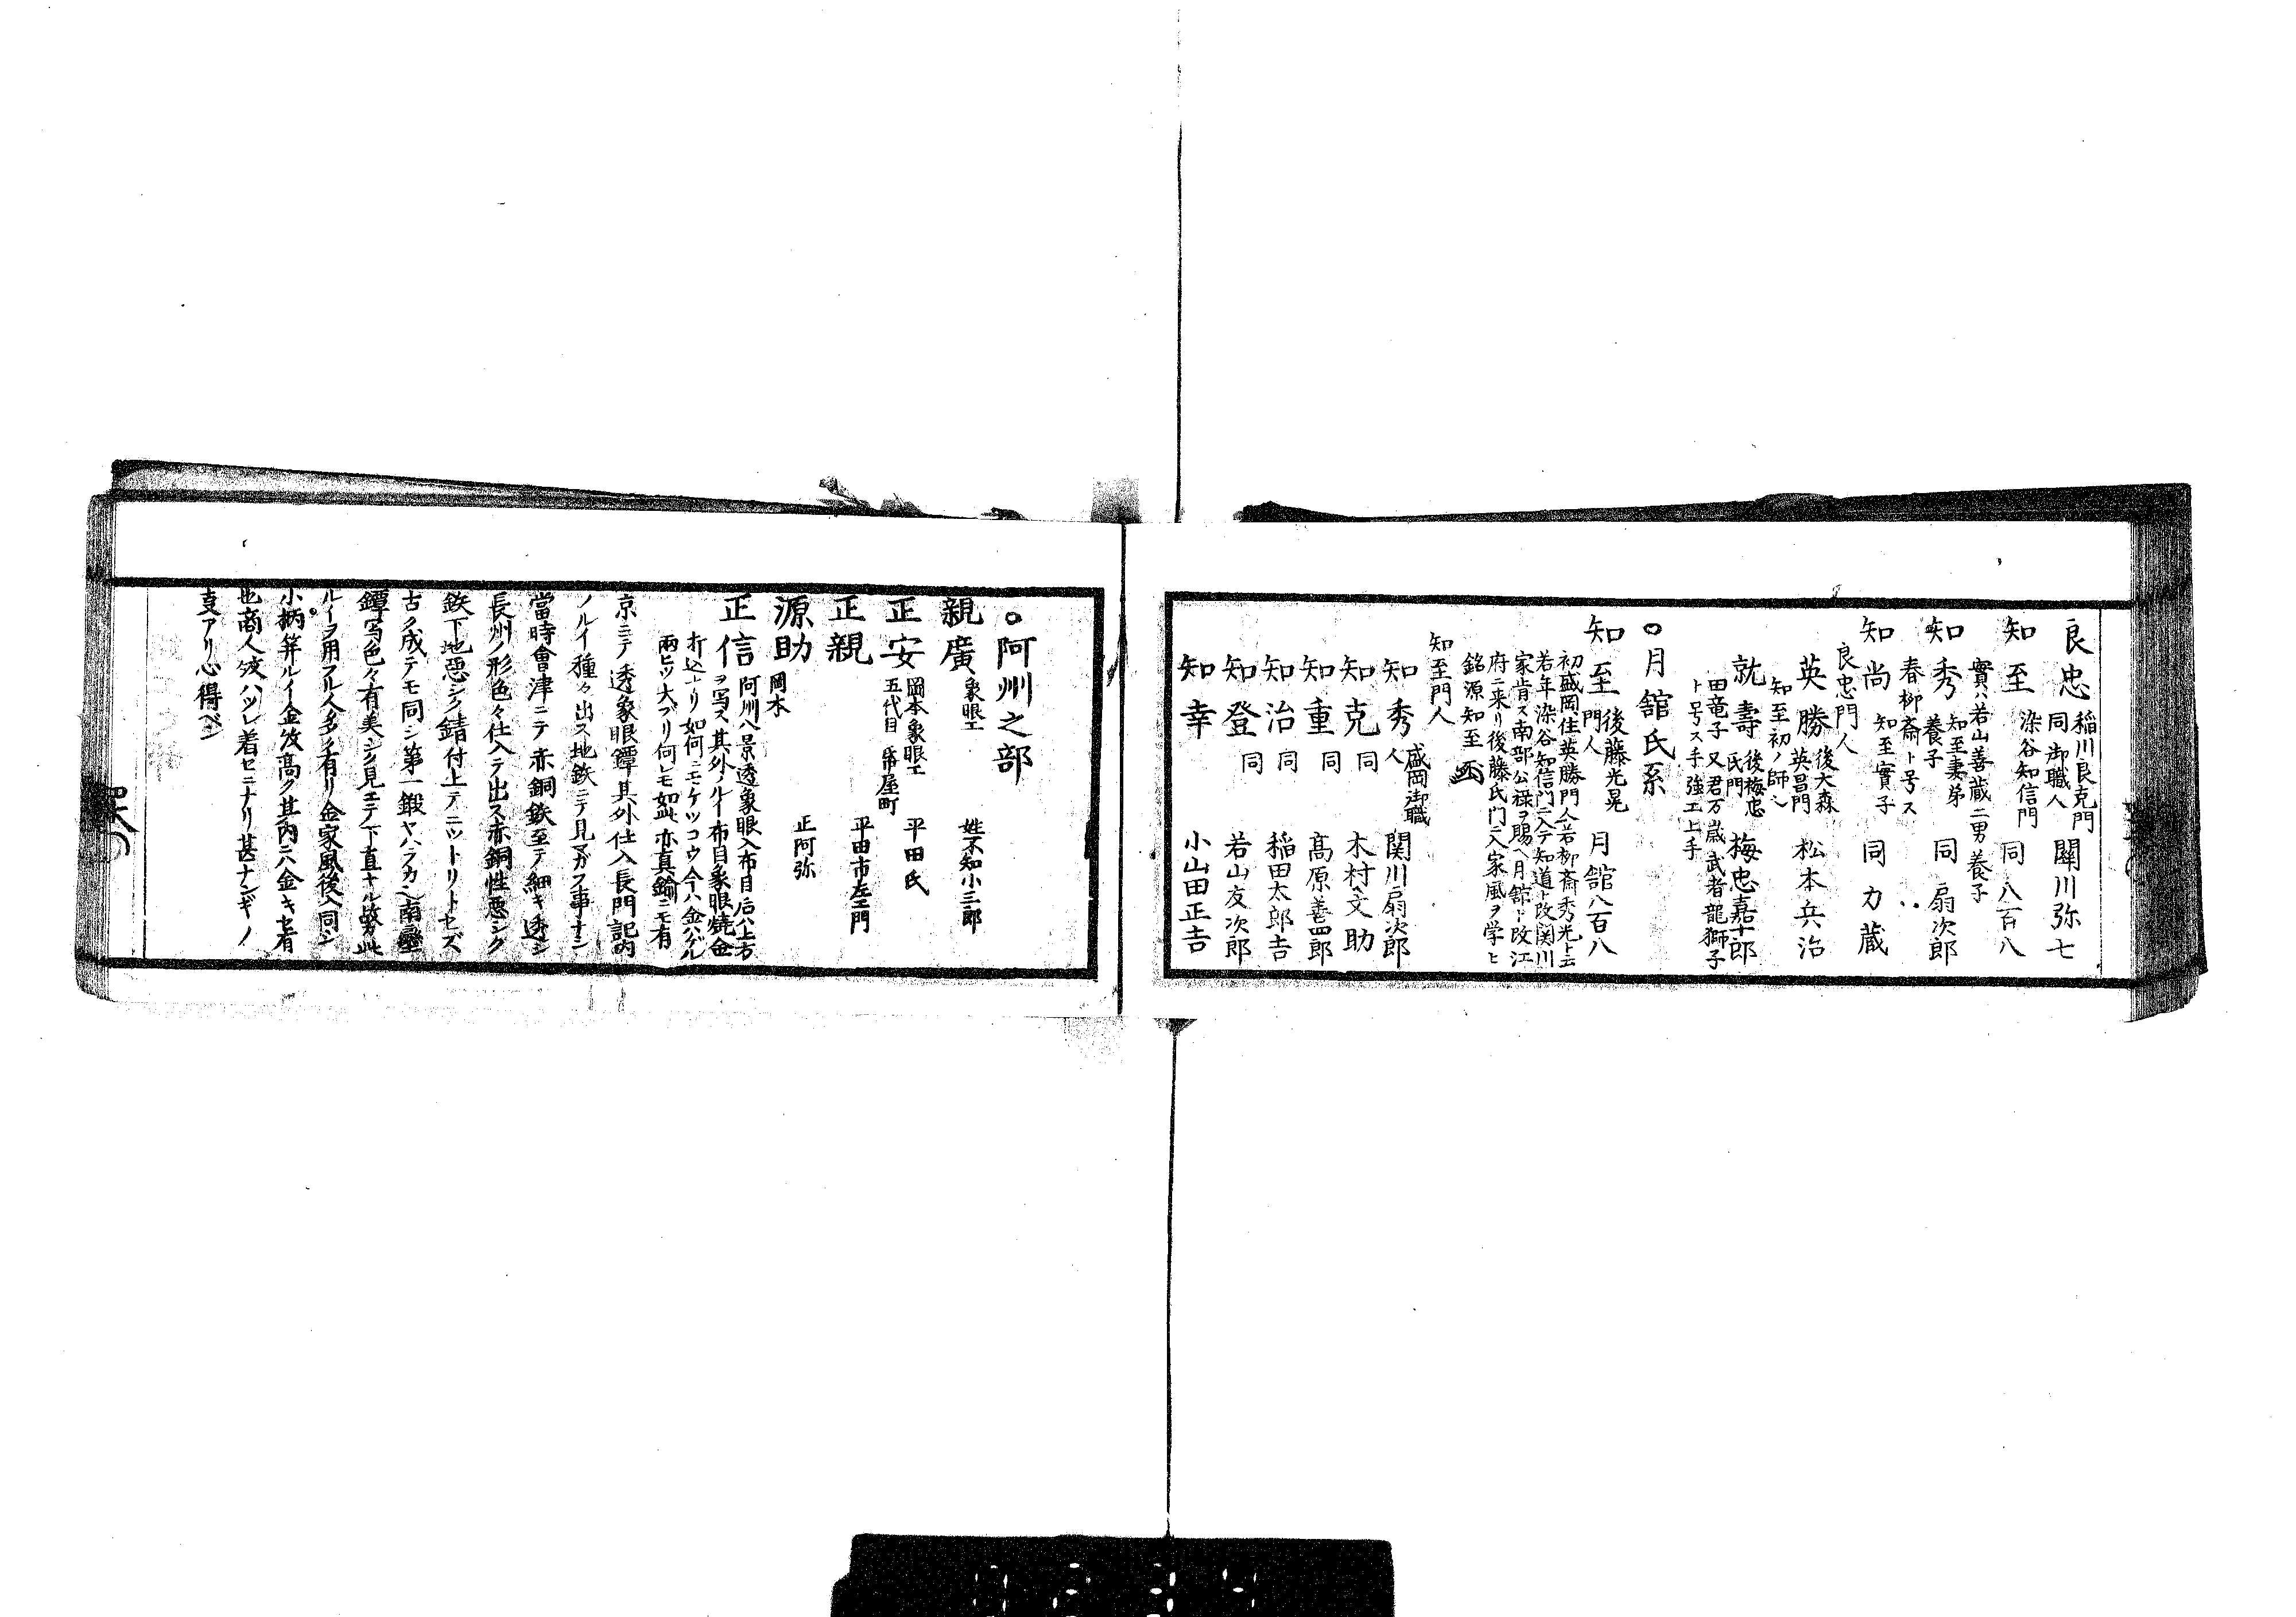 良忠 稲川良克門 同御職人 関川弥七
知至 染谷知信門 同八百八
實ハ若山善蔵二男養子
知秀 知至妻弟 養子 同扇次郎
春柳斎ト号ス
知尚 知至實子 同力蔵
良忠門人
英勝 後大森英昌門 松本兵治
知至初ノ師
就壽 後梅忠氏門 梅忠嘉十郎
田竜子又君万歳武者龍獅子
ト号ス手強工上手
○月舘氏系
知至 後藤光晃門人 月舘八百八
初盛岡住英勝門人若柳斎秀光ト云
若年染谷知信門ニ入テ知道ト改関川
家肯ス南部公禄ヲ賜ヘ月舘ト改江
府ニ来リ後藤氏門ニ入家風ヲ学ヒ
銘源知至
知至門人
知秀 盛岡御職人 関川扇次郎
知克 同 木村文助
知重 同 髙原善四郎
知治 同 稲田太郎吉
知登 同 若山友次郎
知幸 小山田正吉
○阿州之部
親廣 象眼工 姓不知小三郎
正安 岡本象眼工 五代目 屋町 平田氏
正親 平田市左エ門
源助 岡本 正阿弥
正信 阿州八景透象眼入布目后ハ上方
ヲ写ス其外ノルイ布目象眼焼金
折込ナリ如何ニモケツコウ今ハ金ハゲル
両ヒツ大ブリ何レモ如此亦真鍮ニモ有
京ニテ透象眼鐔其外仕入長門記内
ノルイ種々出ス地鉄ニテ見マガフ事ナシ
當時會津ニテ赤銅鉄至テ細キ透シ
長州ノ形色々仕入テ出ス赤銅性悪シク
鉄下地悪シク錆付上テニツトリトセズ
古ク成テモ同シ第一鍛ヤハラカシ南蛮
鐔写色々有美シク見エテ下直ナル故此
ルイヲ用フル人多ク有リ金家風後ヘ同シ
小柄笄ルイ金紋高ク其内ニハ金キセ有
也商人紋ハツレ着セニナリ甚ナンギノ
支アリ心得ベシ